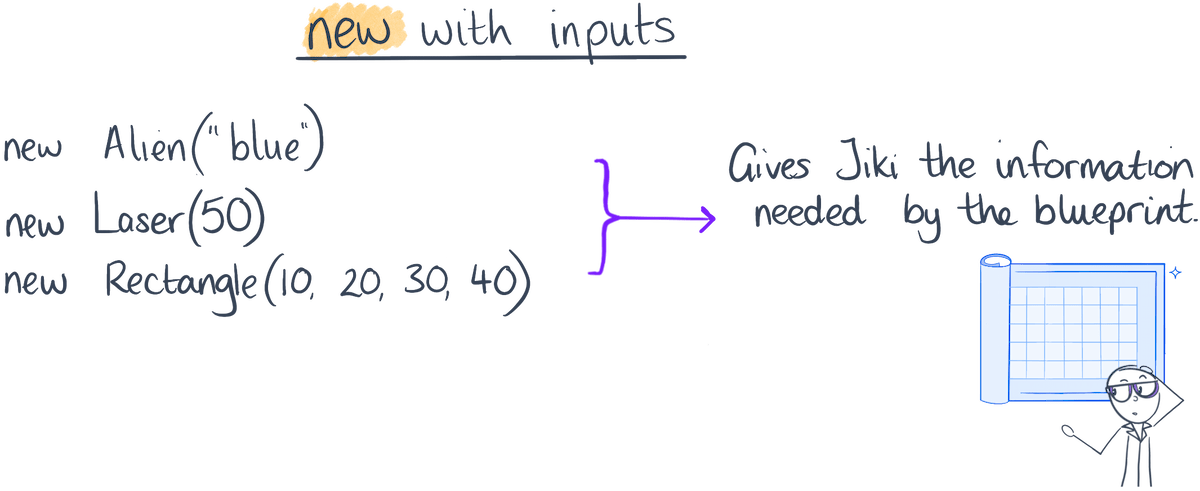 new with inputs
new Alien("blue")
new Laser(50)
new Rectangle(10, 20, 30, 40)
Gives Jiki the information
needed by the blueprint.